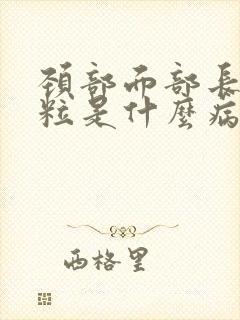 頚部而部長
粒是什麼病
西格里